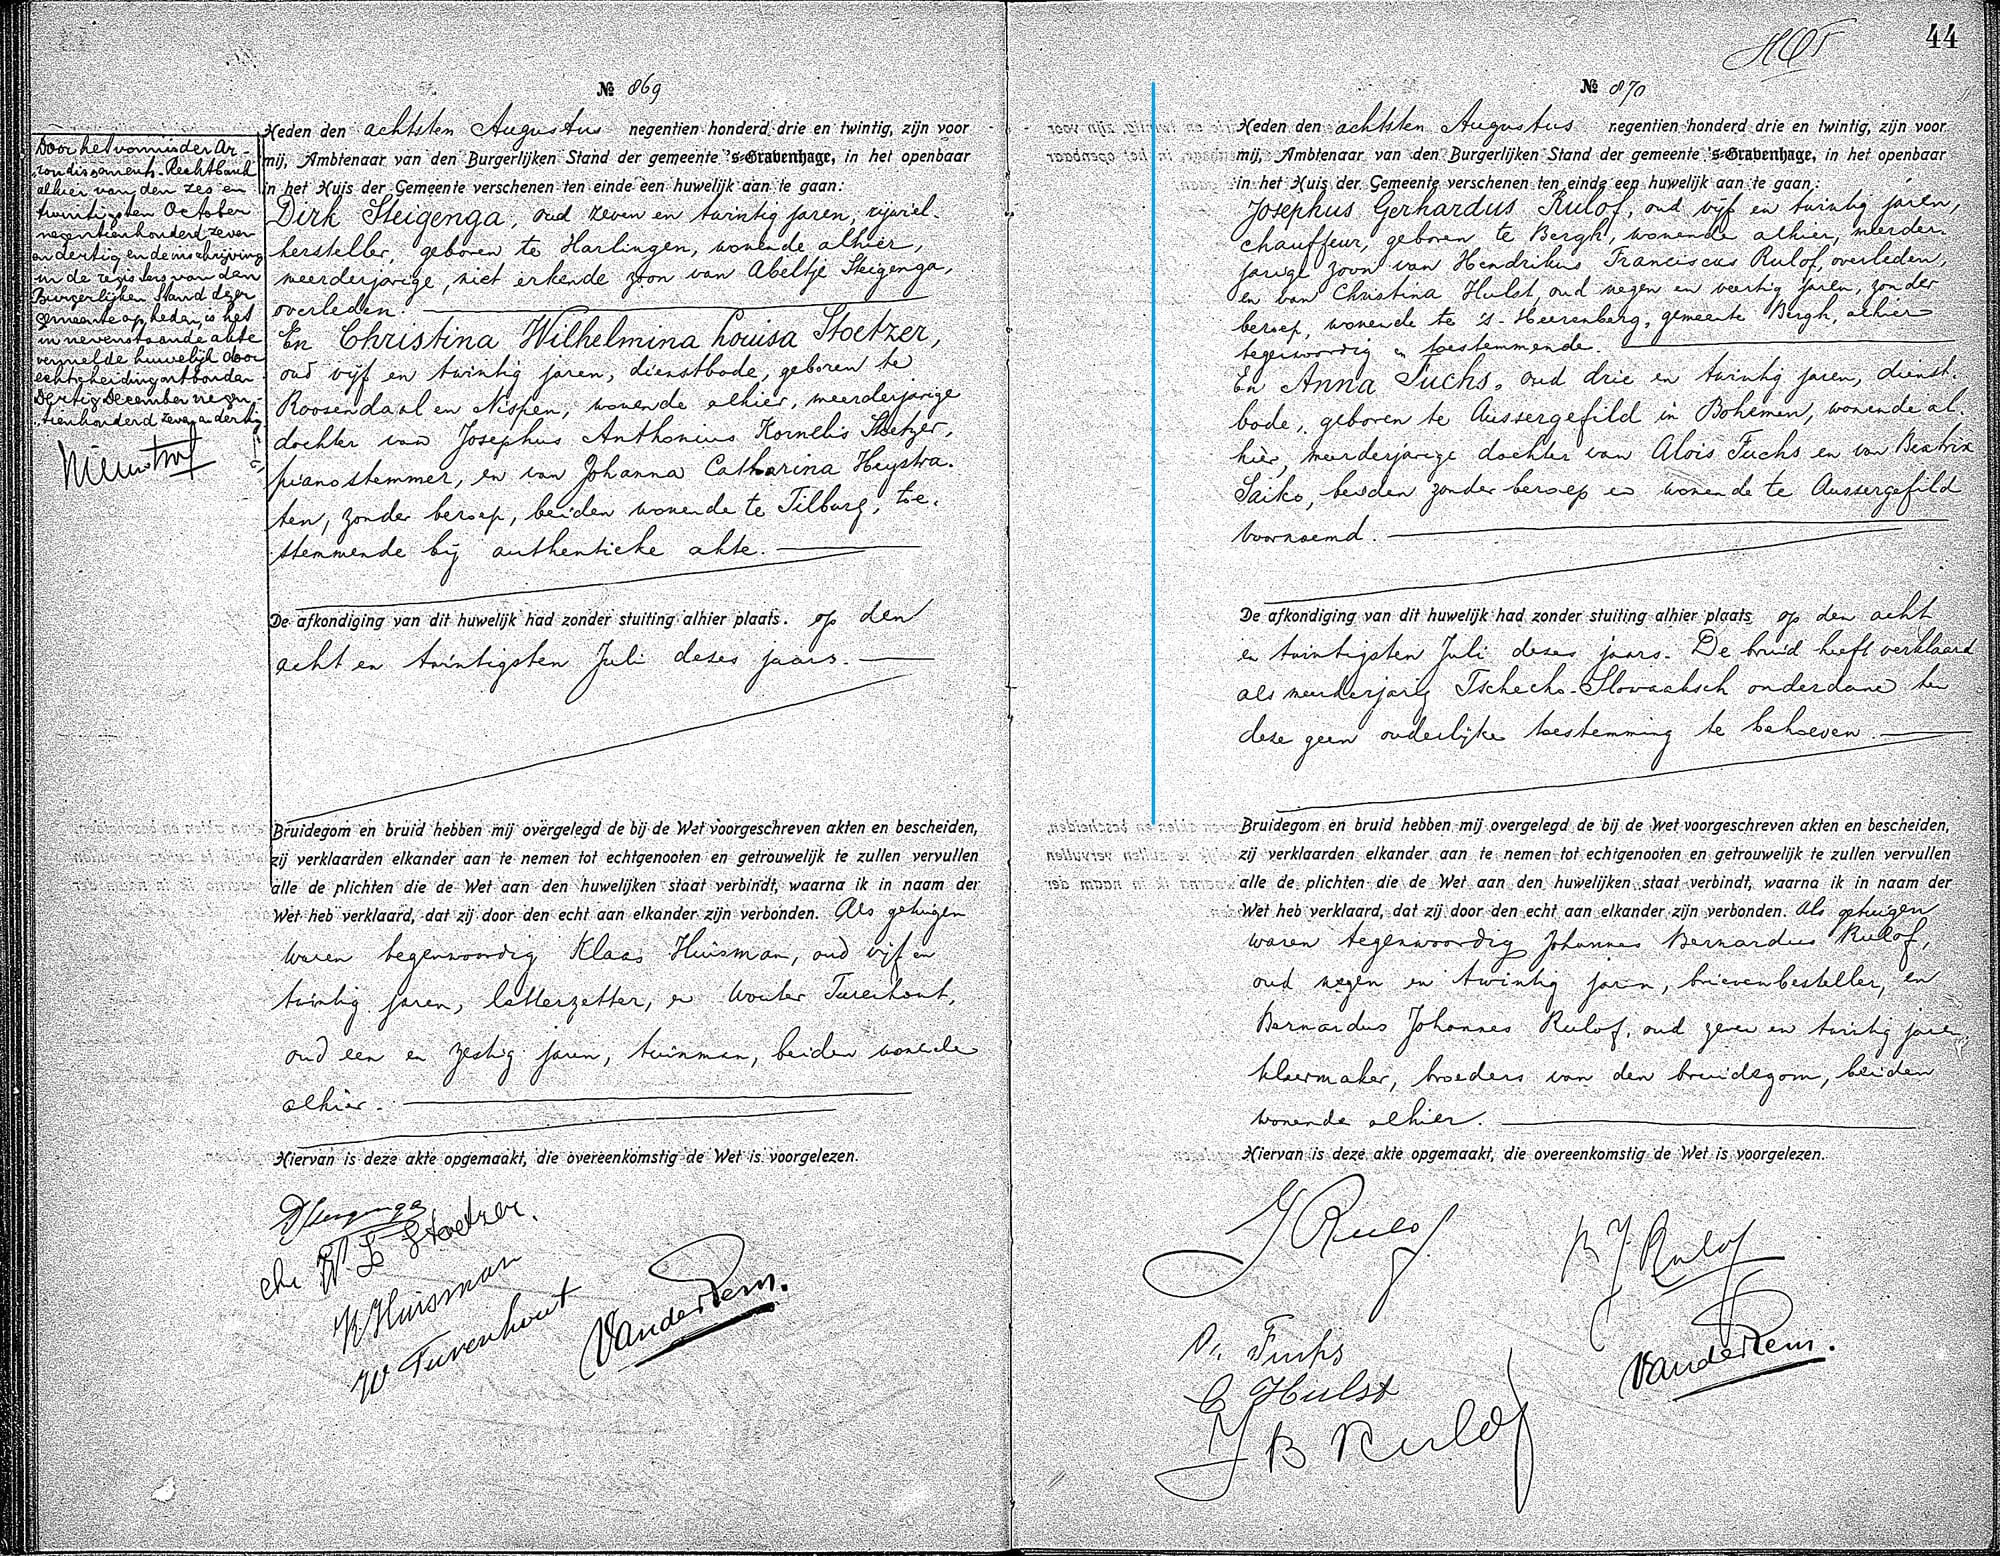 № 869
Heden den achtsten Augustus negentien honderd drie en twintig, zijn voor
mij, Ambtenaar van den Burgerlijken Stand der gemeente 's-Gravenhage, in het openbaar
in het Huis der Gemeente verschenen ten einde een huwelijk aan te gaan:
Dirk Steigenga, oud zeven en twintig jaren, rijwiel-
hersteller, geboren te Harlingen, wonende alhier,
meerderjarige, niet erkende zoon van Abeltje Steigenga,
overleden.
En Christina Wilhelmina Louisa Stoetzer,
oud vijf en twintig jaren, dienstbode, geboren te
Roosendaal en Nispen, wonende alhier, meerderjarige
dochter van Josephus Anthonius Kornelis Stoetzer,
pianostemmer, en van Johanna Catharina Heystra-
ten, zonder beroep, beiden wonende te Tilburg, toe-
stemmende bij authentieke akte.
De afkondiging van dit huwelijk had zonder stuiting alhier plaats. op den
acht en twintigsten Juli dezes jaars.
Bruidegom en bruid hebben mij overgelegd de bij de Wet voorgeschreven akten en bescheiden,
zij verklaarden elkander aan te nemen tot echtgenooten en getrouwelijk te zullen vervullen
alle de plichten die de Wet aan den huwelijken staat verbindt, waarna ik in naam der
Wet heb verklaard, dat zij door den echt aan elkander zijn verbonden. Als getuigen
waren tegenwoordig Klaas Huisman, oud vijf en
twintig jaren, letterzetter, en Wouter Turenhout,
oud een en zestig jaren, tuinman, beiden wonende
alhier.
Hiervan is deze akte opgemaakt, die overeenkomstig de Wet is voorgelezen.
DSteigenga
Chr W L Stoetzer.
K Huisman
W Turenhout
VanderRem.
Door het vonnis der Ar-
rondissements-Rechtbank
alhier van den zes en
twintigsten October
negentienhonderd zeven
en dertig en de inschrijving
in de registers van den
Burgerlijken Stand dezer
gemeente op heden, is het
in nevenstaande akte
vermelde huwelijk door
echtscheiding ontbonden
Dertig December negen-
tienhonderd zeven en dertig
44
№ 870
Heden den achtsten Augustus negentien honderd drie en twintig, zijn voor
mij, Ambtenaar van den Burgerlijken Stand der gemeente 's-Gravenhage, in het openbaar
in het Huis der Gemeente verschenen ten einde een huwelijk aan te gaan:
Josephus Gerhardus Rulof, oud vijf en twintig jaren,
chauffeur, geboren te Bergh, wonende alhier, meerder-
jarige zoon van Hendrikus Franciscus Rulof, overleden,
en van Christina Hulst, oud negen en veertig jaren, zonder
beroep, wonende te 's-Heerenberg, gemeente Bergh, alhier
tegenwoordig en toestemmende.
En Anna Fuchs, oud drie en twintig jaren, dienst-
bode, geboren te Aussergefild in Bohemen, wonende al-
hier, meerderjarige dochter van Alois Fuchs en van Beatrix
Saiko, beiden zonder beroep en wonende te Aussergefild
voornoemd.
De afkondiging van dit huwelijk had zonder stuiting alhier plaats op den acht
en twintigsten Juli dezes jaars. De bruid heeft verklaard
als meerderjarig Tschecho-Slowaaksch onderdane ten
deze geen ouderlijke toestemming te behoeven.
Bruidegom en bruid hebben mij overgelegd de bij de Wet voorgeschreven akten en bescheiden,
zij verklaarden elkander aan te nemen tot echtgenooten en getrouwelijk te zullen vervullen
alle de plichten die de Wet aan den huwelijken staat verbindt, waarna ik in naam der
Wet heb verklaard, dat zij door den echt aan elkander zijn verbonden. Als getuigen
waren tegenwoordig Johannes Bernardus Rulof,
oud negen en twintig jaren, brievenbesteller, en
Bernardus Johannes Rulof, oud zeven en twintig jaren
kleermaker, broeders van den bruidegom, beiden
wonende alhier.
Hiervan is deze akte opgemaakt, die overeenkomstig de Wet is voorgelezen.
J Rulof
B J Rulof
A. Fuchs
VanderRem.
C Hulst
J B Rulof